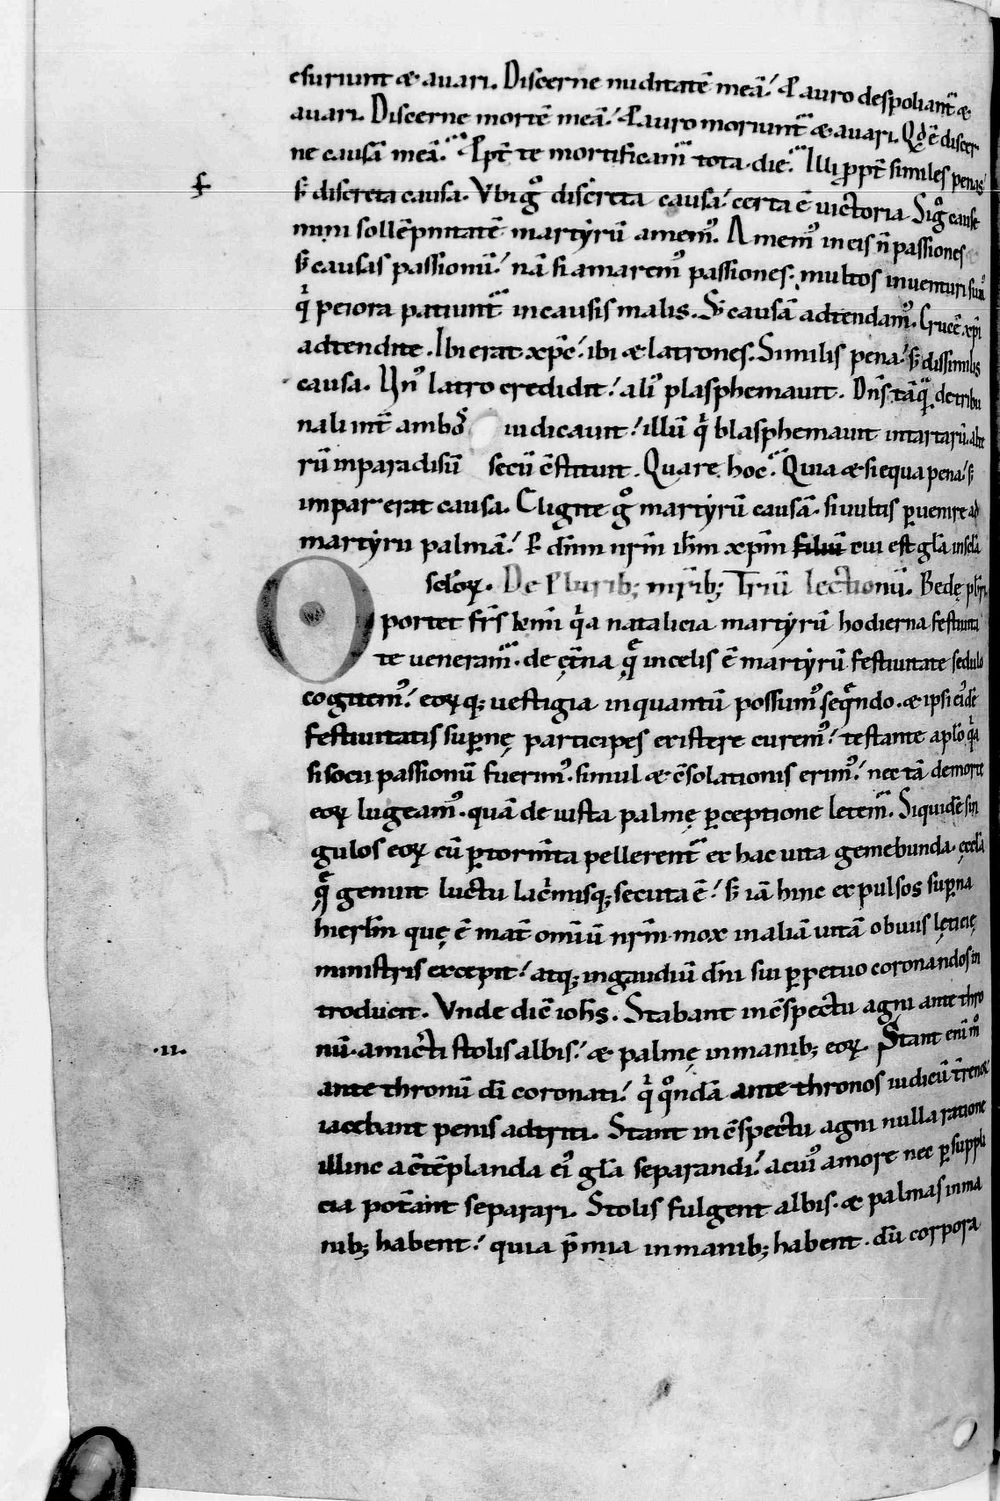 esuriunt & auari. Discerne nuditatē meā! P auro despoliant᷑ &
auari. Discerne mortē meā! P auro moriunt᷑ & auari. Qd̄ ē discer
ne causā meā. Ppt̄ te mortificam᷑ tota die. Illi ppt̄ similes penas!
s; discreta causa. Vbi gͦ discreta causa! certa ē uictoria. Sigͦ cause
nim sollēpnitatē martyrū amemꝰ. Amemꝰ in eis n̄ passiones
s; causas passionū! nā si amaremꝰ passiones. multos inuenturi sumꝰ
qⁱ peiora patiunt᷑ in causis malis. S; causā adtendamꝰ. Crucē xp̄i
adtendite. Ibi erat xp̄c! ibi & latrones. Similis pena! s; dissimilis
causa. Vnꝰ latro credidit! aliꝰ plasphemauit. Dn̄s tāqᵃ de tribu
nali int̄ ambos iudicauit! illū qⁱ blasphemauit in tartarū. alte
rū in paradisū secū cstituit. Quare hoc? Quia & si equa pena! s;
impar erat causa. Eligite gͦ martyrū causā. si uultis ꝑuenire ad
martyrii palmā! P dn̄m nr̄m ih̄m xp̄m filiū cui est gl̄a in scl̄a
scl̄oꝝ. De Plurib; mr̄ib; Triū lectionū. Bedę pb̄ri.
Oportet fr̄s km̄i qⁱa natalicia martyrū hodierna festiuita
te ueneram᷑. de ęt̄na quę in celis ē martyrū festiuitate sedulo
cogitemꝰ! eoꝝq; uestigia inquantū possumꝰ seqᵉndo. & ipsi eiꝰdē
festiuitatis suꝑnę participes existere curemꝰ! testante apl̄o qⁱa
si socii passionū fuerimꝰ. simul & c̄solationis erimꝰ! nec tā de morte
eoꝝ lugeamꝰ. quā de iusta palmę ꝑceptione letem᷑. Siquidē sin
gulos eoꝝ cū ꝑ torm̄ta pellerent᷑ ex hac uita gemebunda. ęccl̄a
quę genuit luctu lac̄misq; secuta ē! s; iā hinc expulsos suꝑna
hierl̄m quę ē mat̄ omiū nr̄m mox in aliā uitā obuiis lęticię
ministris excepit! atq; in gaudiū dn̄i sui ꝑpetuo coronandos in
troduxit. Vnde diĉ ioh̄s. Stabant in c̄spectu agni ante thro
nū. amicti stolis albis! & palmę in manib; eoꝝ. Stant eni mͦ
.ii.
ante thronū dī coronati! qⁱ qͦndā ante thronos iudicū t̄renoꝝ
iacebant penis adtriti. Stant in c̄spectu agni nulla ratione
illinc a c̄tēplanda eiꝰ gl̄a separandi! a cuiꝰ amore nec ꝑ suppli
cia pot̄ant separari. Stolis fulgent albis. & palmas in ma
nib; habent! quia p̄mia in manib; habent. dū corpora